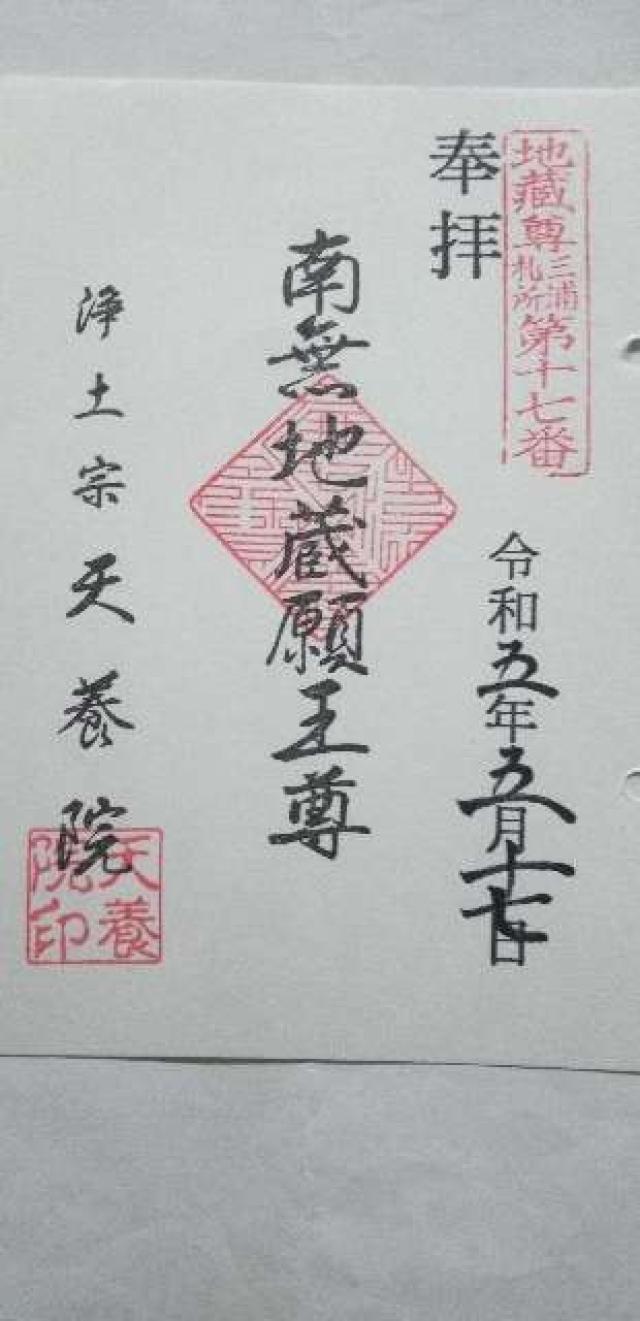 地蔵尊三浦札所第十七番
奉拝
令和五年五月十七日
南無地蔵願王尊
浄土宗天養院
天養院印